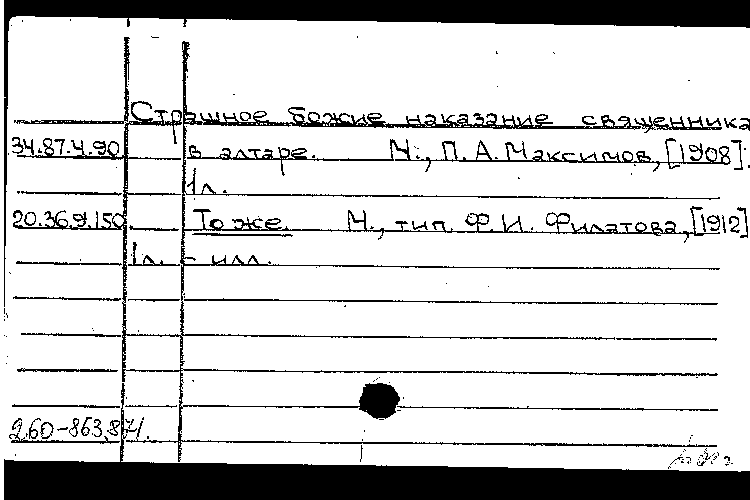 Страшное божие наказание священника
34.87.4.90 в алтаре. М., П. А. Максимов, [1908].
1л.
20.36.9.150. То же. М., тип. Ф. И. Филатова, [1912]
1л. – илл.
2.60-863.871.